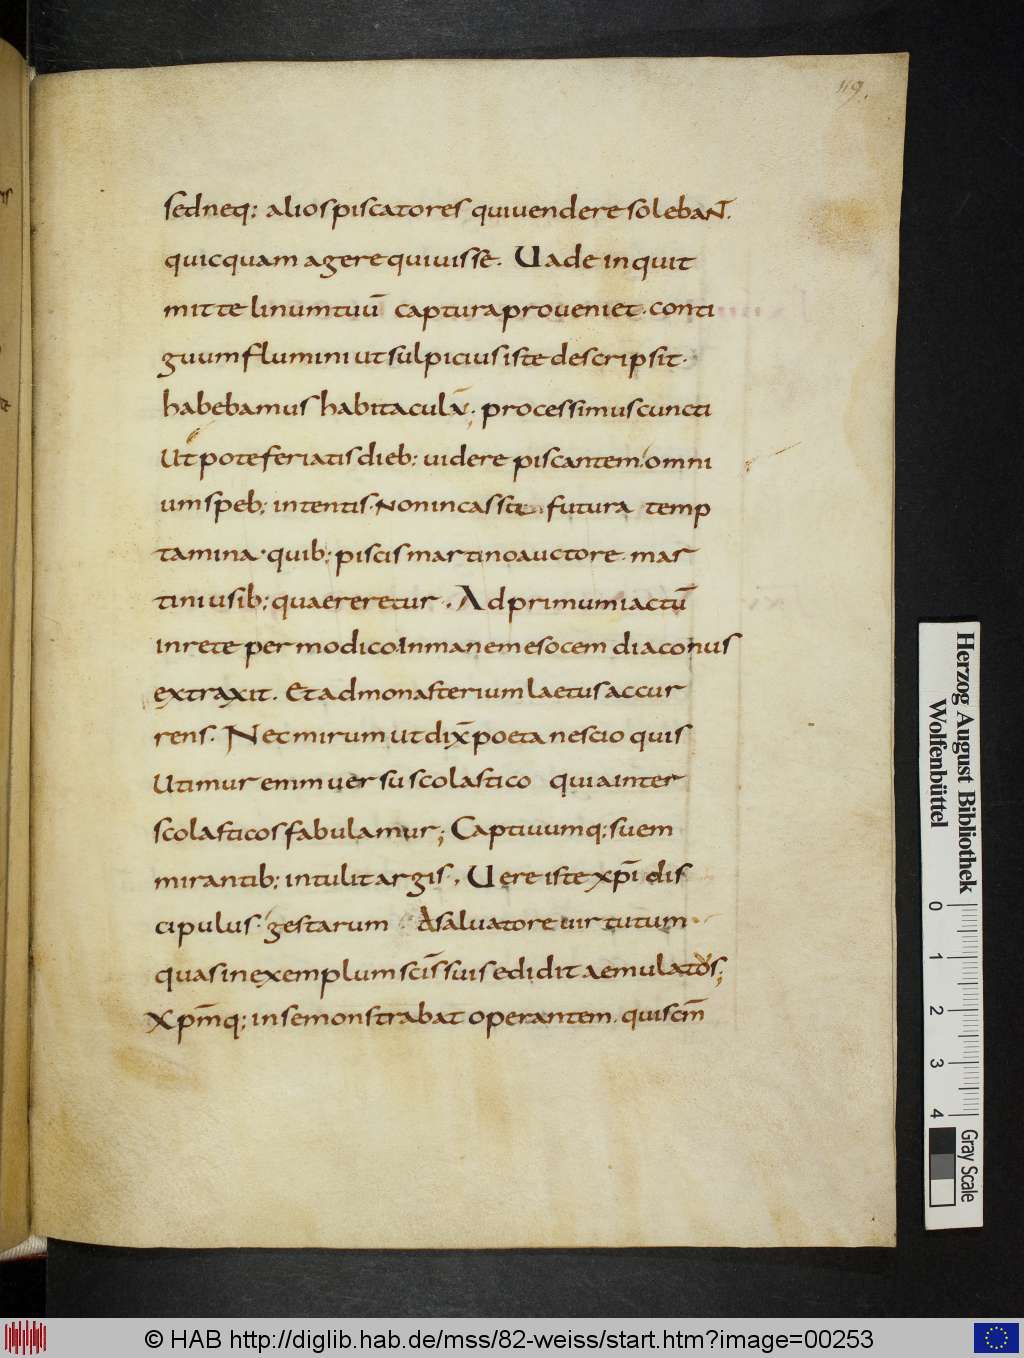 119.
sedneq; aliospiscatores quiuendere solebaNT.
quicquam agere quiuisse. Uade inquit
mitte linumtuū captura proueniet. conti
guum flumini ut sulpicius iste descripsit.
habebamus habitaculū; processimus cuncti
Ut pote feriatis dieb; uidere piscantem. omni
um speb; intentis. Non incassū futura temp
tamina. quib; piscis martino auctore. mar
tini usib; quaereretur. Ad primum iactū
in rete per modico. Inmanem esocem diaconus
extraxit. Et ad monasterium laetus accur
rens. Nec mirum ut dix̄ poeta nescio quis
Utimur enim uersu scolastico quia inter
scolasticos fabulamur; Captiuumq; suem
mirantib; intulit argis. Uere iste xp̄i dis
cipulus. gestarum A saluatore uirtutum
quas in exemplum sc̄is suis edidit aemulator;
Xp̄mq; in se monstrabat operantem. qui sc̄m
Herzog August Bibliothek
Wolfenbüttel
0 1 2 3 4
Gray Scale
© HAB http://diglib.hab.de/mss/82-weiss/start.htm?image=00253